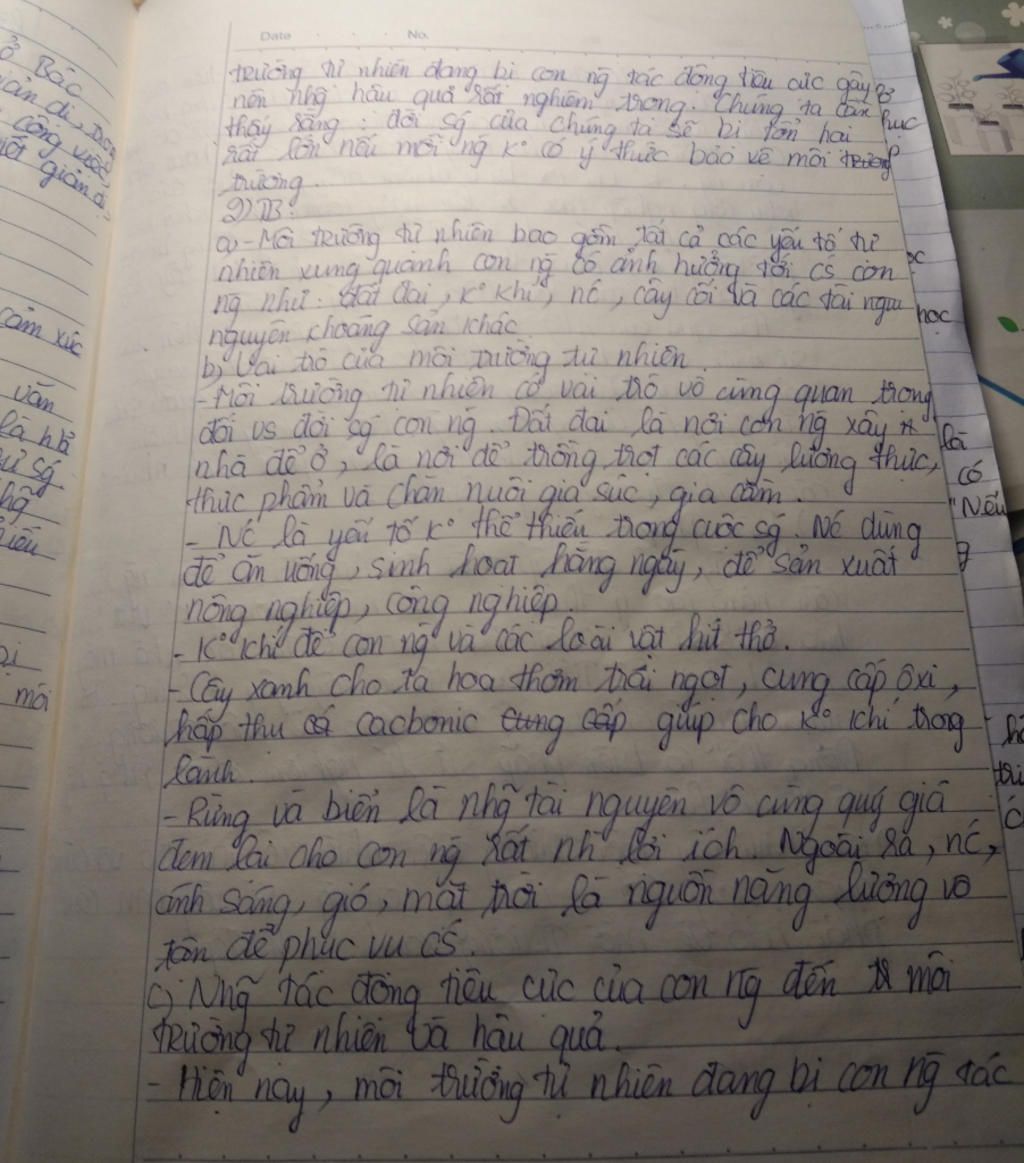 Date No.
trường tự nhiên đang bị con ng tác động tiêu cực gây
nên nhg hậu quả rất nghiêm trọng. Chúng ta cần
thấy rằng: đời sg của chúng ta sẽ bị tổn hại
rất lớn nếu mỗi ng K° có ý thức bảo vệ môi trường
trường.
2) TB:
a) - Môi trường tự nhiên bao gồm tất cả các yếu tố tự
nhiên xung quanh con ng có ảnh hưởng tới CS con
ng như: đất đai, K° khí, nc, cây cối và các tài ngu
nguyên khoáng sản khác
b) Vai trò của môi trường tự nhiên.
- Môi trường tự nhiên có vai trò vô cùng quan trọng
đối vs đời sg con ng. Đất đai là nơi con ng xây
nhà để ở, là nơi để trồng trọt các cây lương thực,
thực phẩm và chăn nuôi gia súc, gia cầm.
- Nc là yếu tố K° thể thiếu trong cuộc sg. Nc dùng
để ăn uống, sinh hoạt hằng ngày, để sản xuất
nông nghiệp, công nghiệp.
- K° khí để con ng và các loài vật hít thở.
- Cây xanh cho ta hoa thơm trái ngọt, cung cấp ôxi,
hấp thụ cacbonic cung cấp giúp cho K° khí trong
lành.
- Rừng và biển là nhg tài nguyên vô cùng quý giá
đem lại cho con ng rất nh lợi ích. Ngoài ra, nc,
ánh sáng, gió, mặt trời là nguồn năng lượng vô
tận để phục vụ CS.
c) Nhg tác động tiêu cực của con ng đến môi
trường tự nhiên và hậu quả.
- Hiện nay, môi trường tự nhiên đang bị con ng tác
ở Bác
công việc,
giản dị
cảm xúc
văn
là nhà
sg
mới
học
là
có
"Nếu